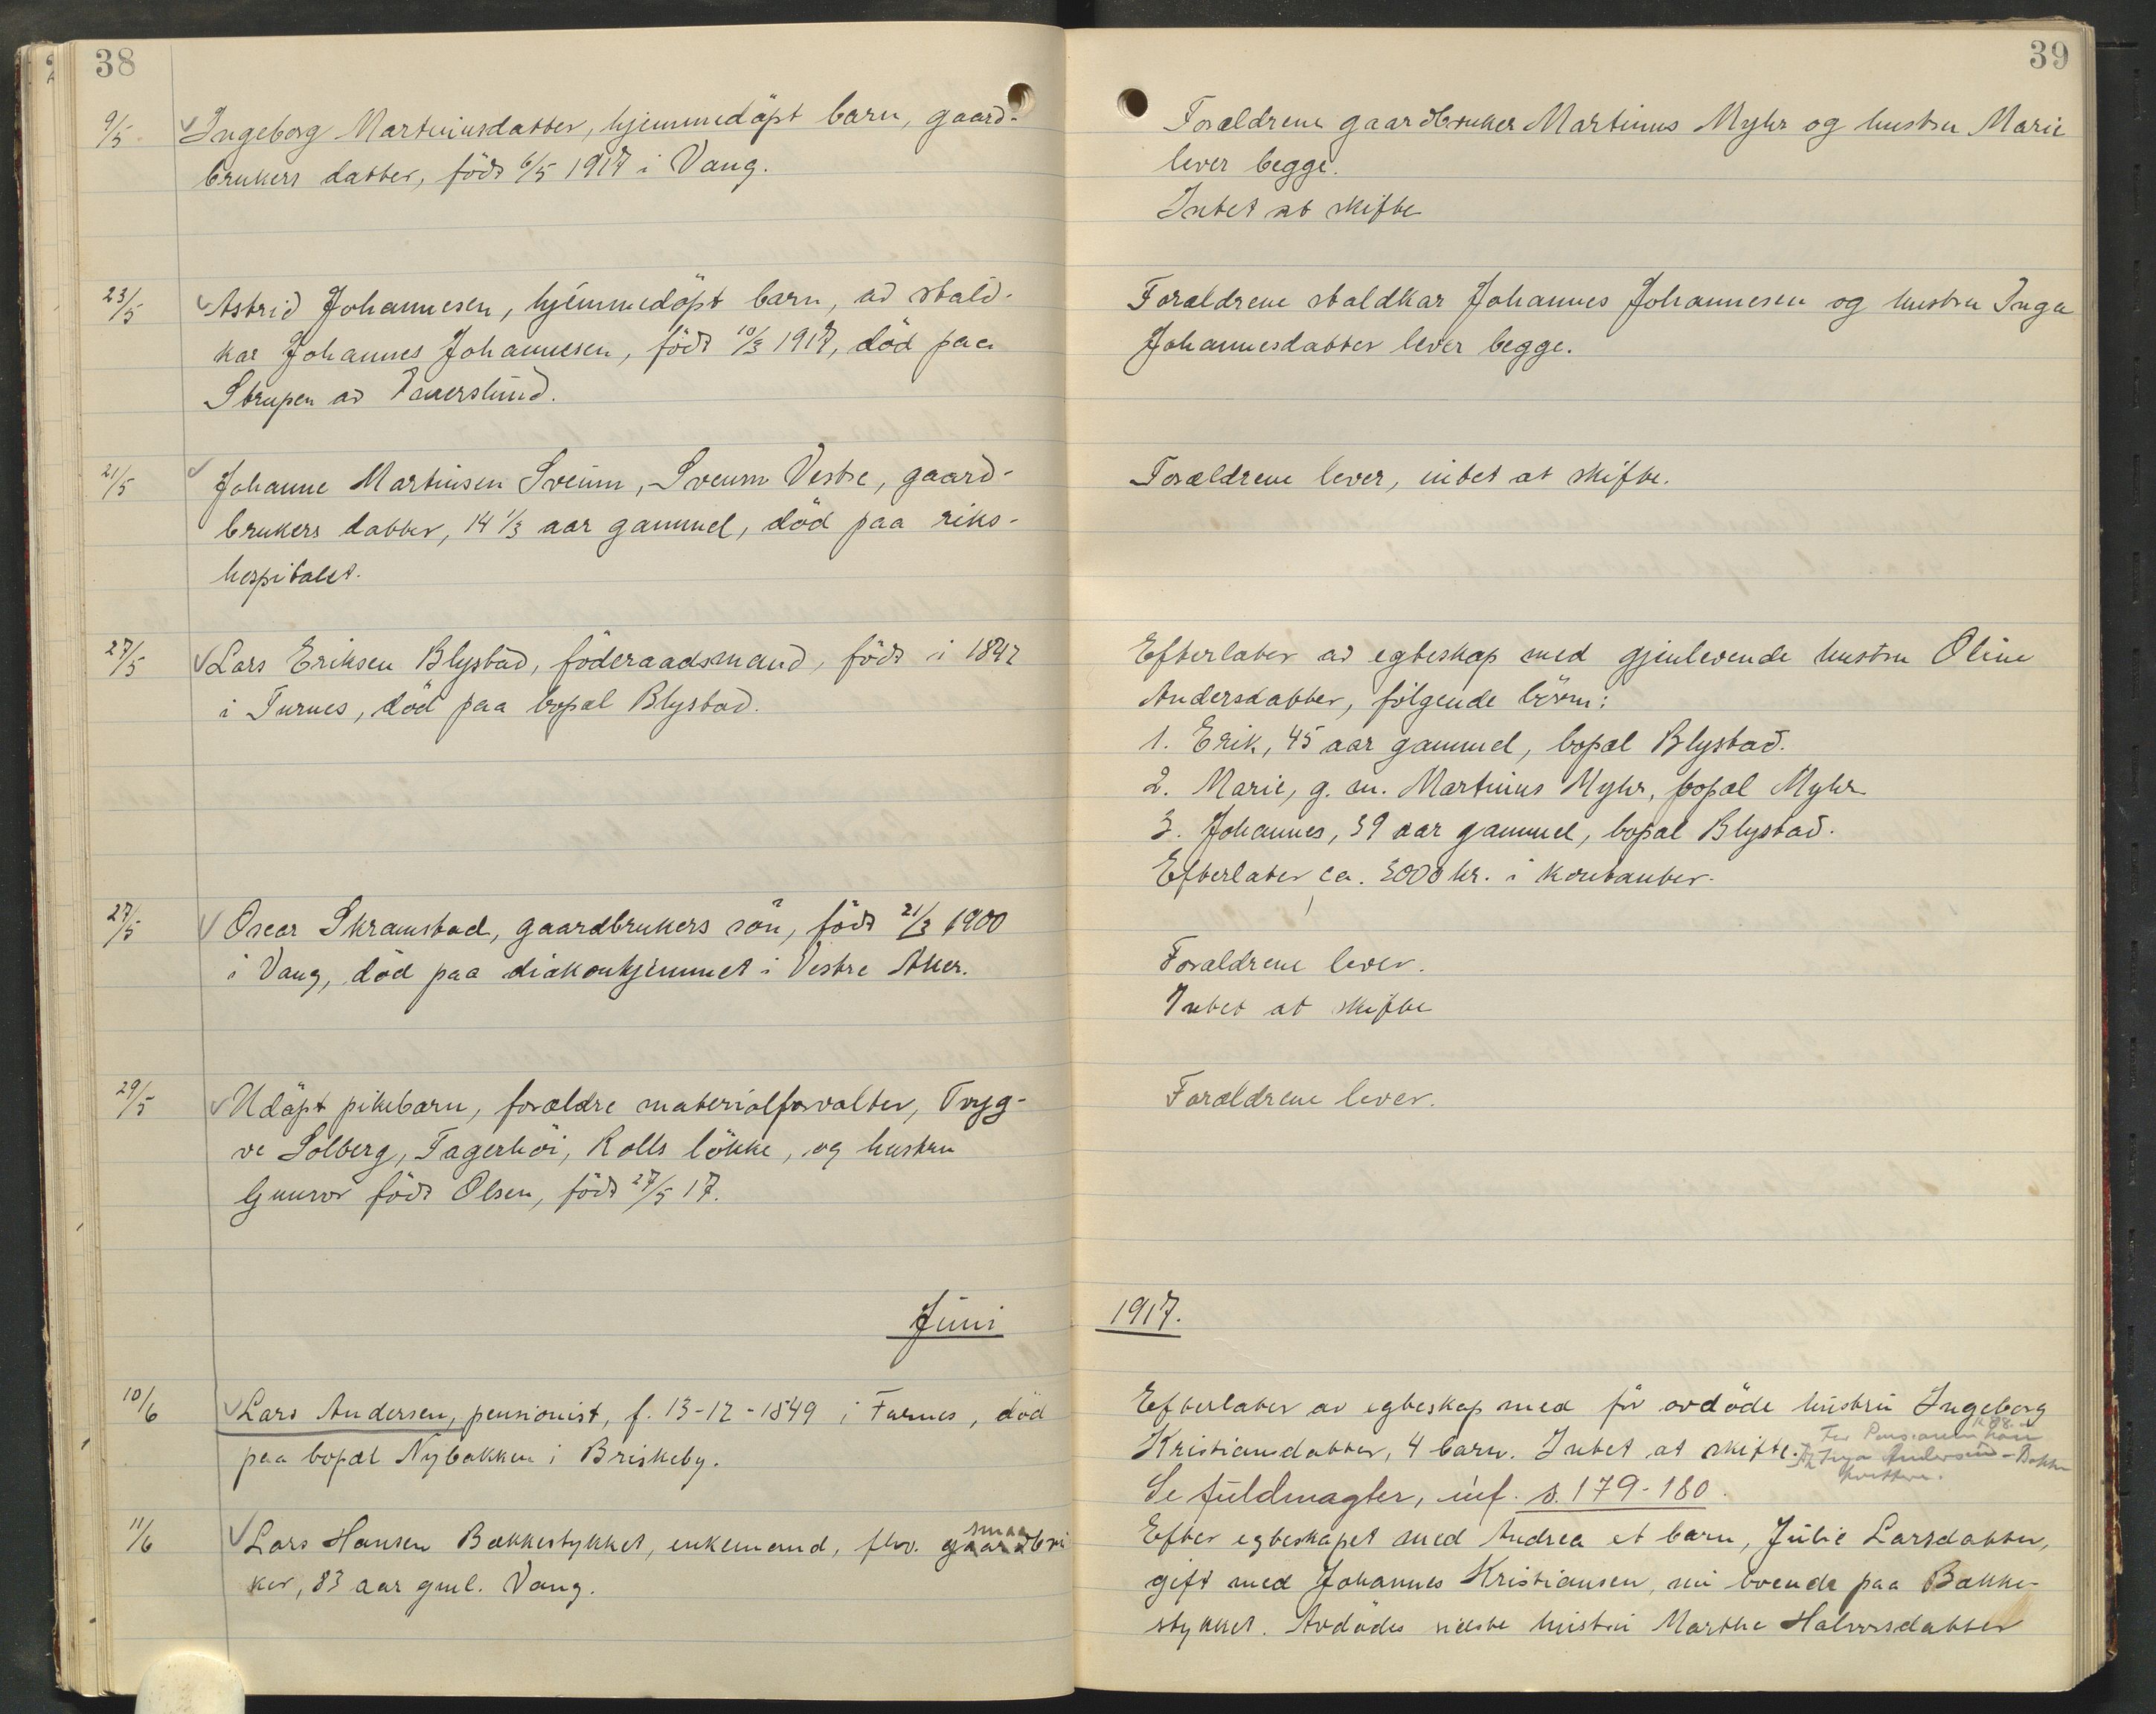 38
9/5 Ingeborg Martinusdatter, hjemmedöpt barn, gaard-
brukers datter, född 6/5 1917 i Vang.
23/5 Astrid Johannesen, hjemmedöpt barn, av stald-
kar Johannes Johannesen, född 10/3 1917, död paa
Strupen av
21/5 Johanne Martinsen Sveum, Sveum Vestre, gaard-
brukers datter, 14 1/3 aar gammel, död paa riks-
hospitalet.
27/5 Lars Eriksen Blystad, föderaadsmand, född i 1842
i Furnes, död paa bopæl Blystad.
27/5 Oscar Skramstad, gaardbrukers sön, född 21/3 1900
i Vang, död paa diakonhjemmet i Vestre Aker.
29/5 Udöpt pikebarn, forældre materialforvalter, Tryg-
ve Solberg, Fagerhöi, Rolls lökke, og hustru
Gunvor född Olsen, född 27/5 17.
Juni
10/6 Lars Andersen, pensionist, f. 13-12-1849 i Furnes, död
paa bopæl Nybakken i Briskeby.
11/6 Lars Hansen Bakkestykket, enkemand, fhv. smaabru
ker, 83 aar gml. Vang.
39
Forældrene gaardbruker Martinus Myhr og hustru Marie
lever begge.
Intet at skifte
Forældrene staldkar Johannes Johannesen og hustru Inga
Johannesdatter lever begge.
Forældrene lever, intet at skifte.
Efterlater av egteskap med gjenlevende hustru Oline
Andersdatter, følgende börn:
1. Erik, 45 aar gammel, bopæl Blystad.
2. Marie, g. m. Martinus Myhr, bopæl Myhr
3. Johannes, 39 aar gammel, bopæl Blystad.
Efterlater ca. 3000 kr. i kontanter.
Forældrene lever.
Intet at skifte
Forældrene lever.
1917.
Efterlater av egteskap med för avdöde hustru Ingeborg
Kristiansdatter, 4 barn. Intet at skifte.
Se fuldmagter, inf. s. 179-180.
Efter egteskapet med Andrea et barn, Julie Larsdatter,
gift med Johannes Kristiansen, nu boende paa Bakke-
stykket. Avdödes sidste hustru Marthe Halvorsdatter